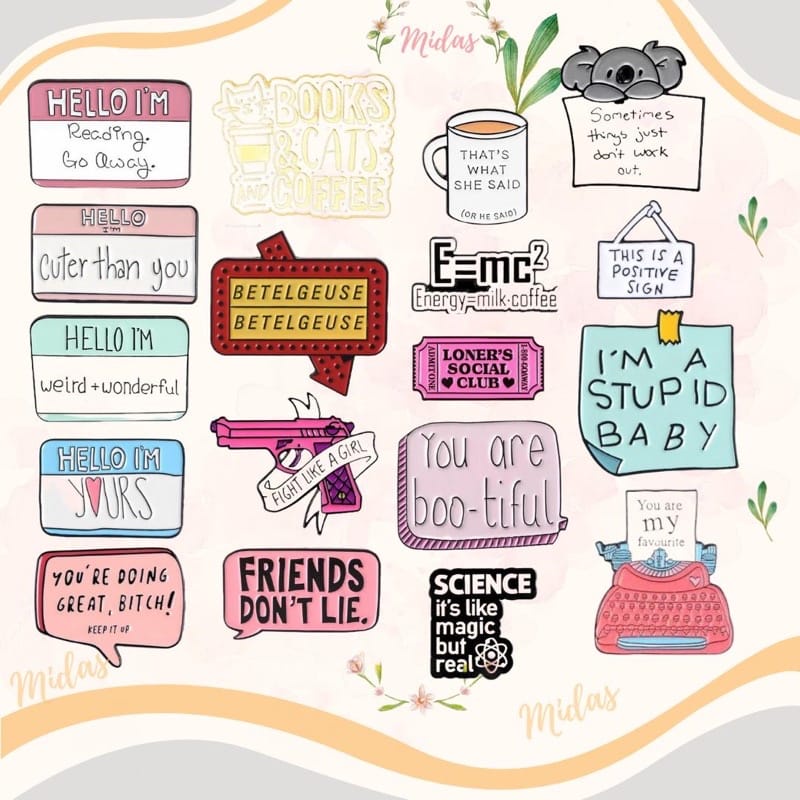 Midas
HELLO I'M
Reading.
Go Away.
HELLO
I'M
Cuter than you
HELLO I'M
weird + wonderful
HELLO I'M
YOURS
YOU'RE DOING
GREAT, BITCH!
KEEP IT UP
BOOKS
& CATS
AND COFFEE
BETELGEUSE
BETELGEUSE
FIGHT LIKE A GIRL
FRIENDS
DON'T LIE.
THAT'S
WHAT
SHE SAID
(OR HE SAID)
E=mc2
Energy=milk·coffee
ADMIT ONE
LONER'S
SOCIAL
CLUB
1-800-GOAWAY
You are
boo-tiful
SCIENCE
it's like
magic
but
real
Sometimes
things just
don't work
out.
THIS IS A
POSITIVE
SIGN
I'M A
STUPID
BABY
You are
my
favourite
Midas
Midas